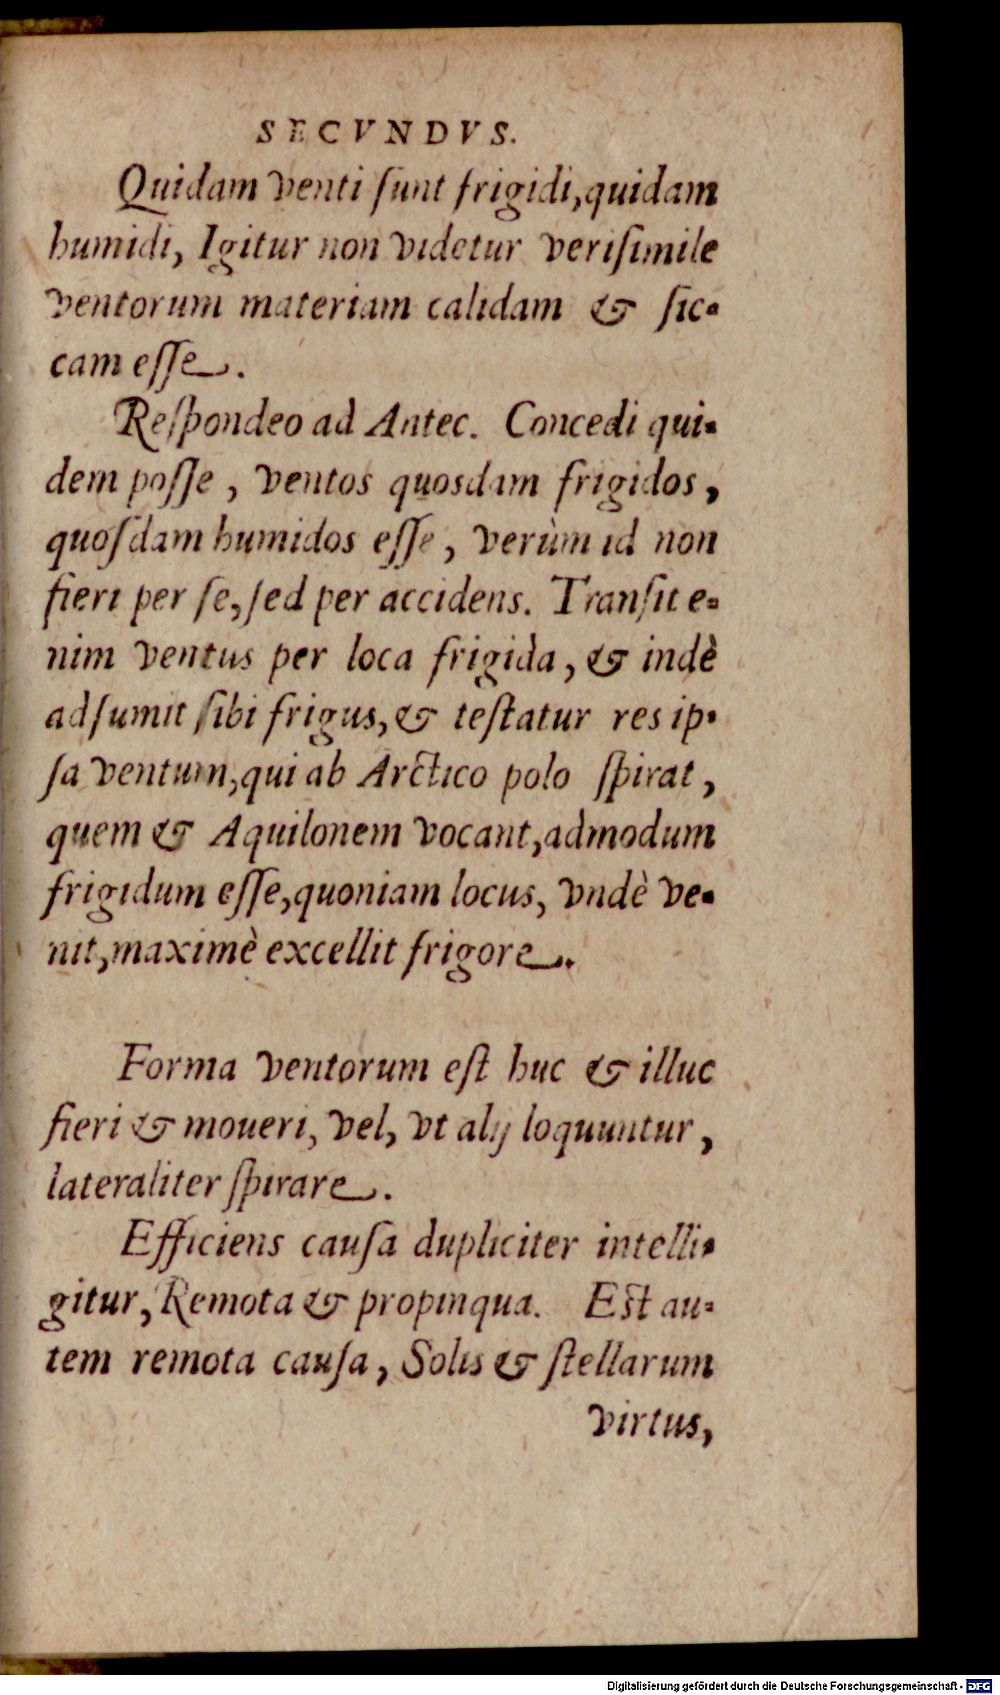 SECVNDVS.
Quidam venti ſunt frigidi,quidam
humidi, Igitur non videtur veriſimile
ventorum materiam calidam & ſic-
cam eſſe.
Reſpondeo ad Antec. Concedi qui-
dem poſſe, ventos quosdam frigidos,
quoſdam humidos eſſe, verùm id non
fieri per ſe,ſed per accidens. Tranſit e-
nim ventus per loca frigida, & indè
adſumit ſibi frigus, & teſtatur res ip-
ſa ventum,qui ab Arctico polo ſpirat,
quem & Aquilonem vocant,admodum
frigidum eſſe,quoniam locus, vndè ve-
nit,maximè excellit frigore.
Forma ventorum eſt huc & illuc
fieri & moueri, vel, vt alij loquuntur,
lateraliter ſpirare.
Efficiens cauſa dupliciter intelli-
gitur, Remota & propinqua. Eſt au-
tem remota cauſa, Solis & ſtellarum
virtus,
Digitalisierung gefördert durch die Deutsche Forschungsgemeinschaft - DFG